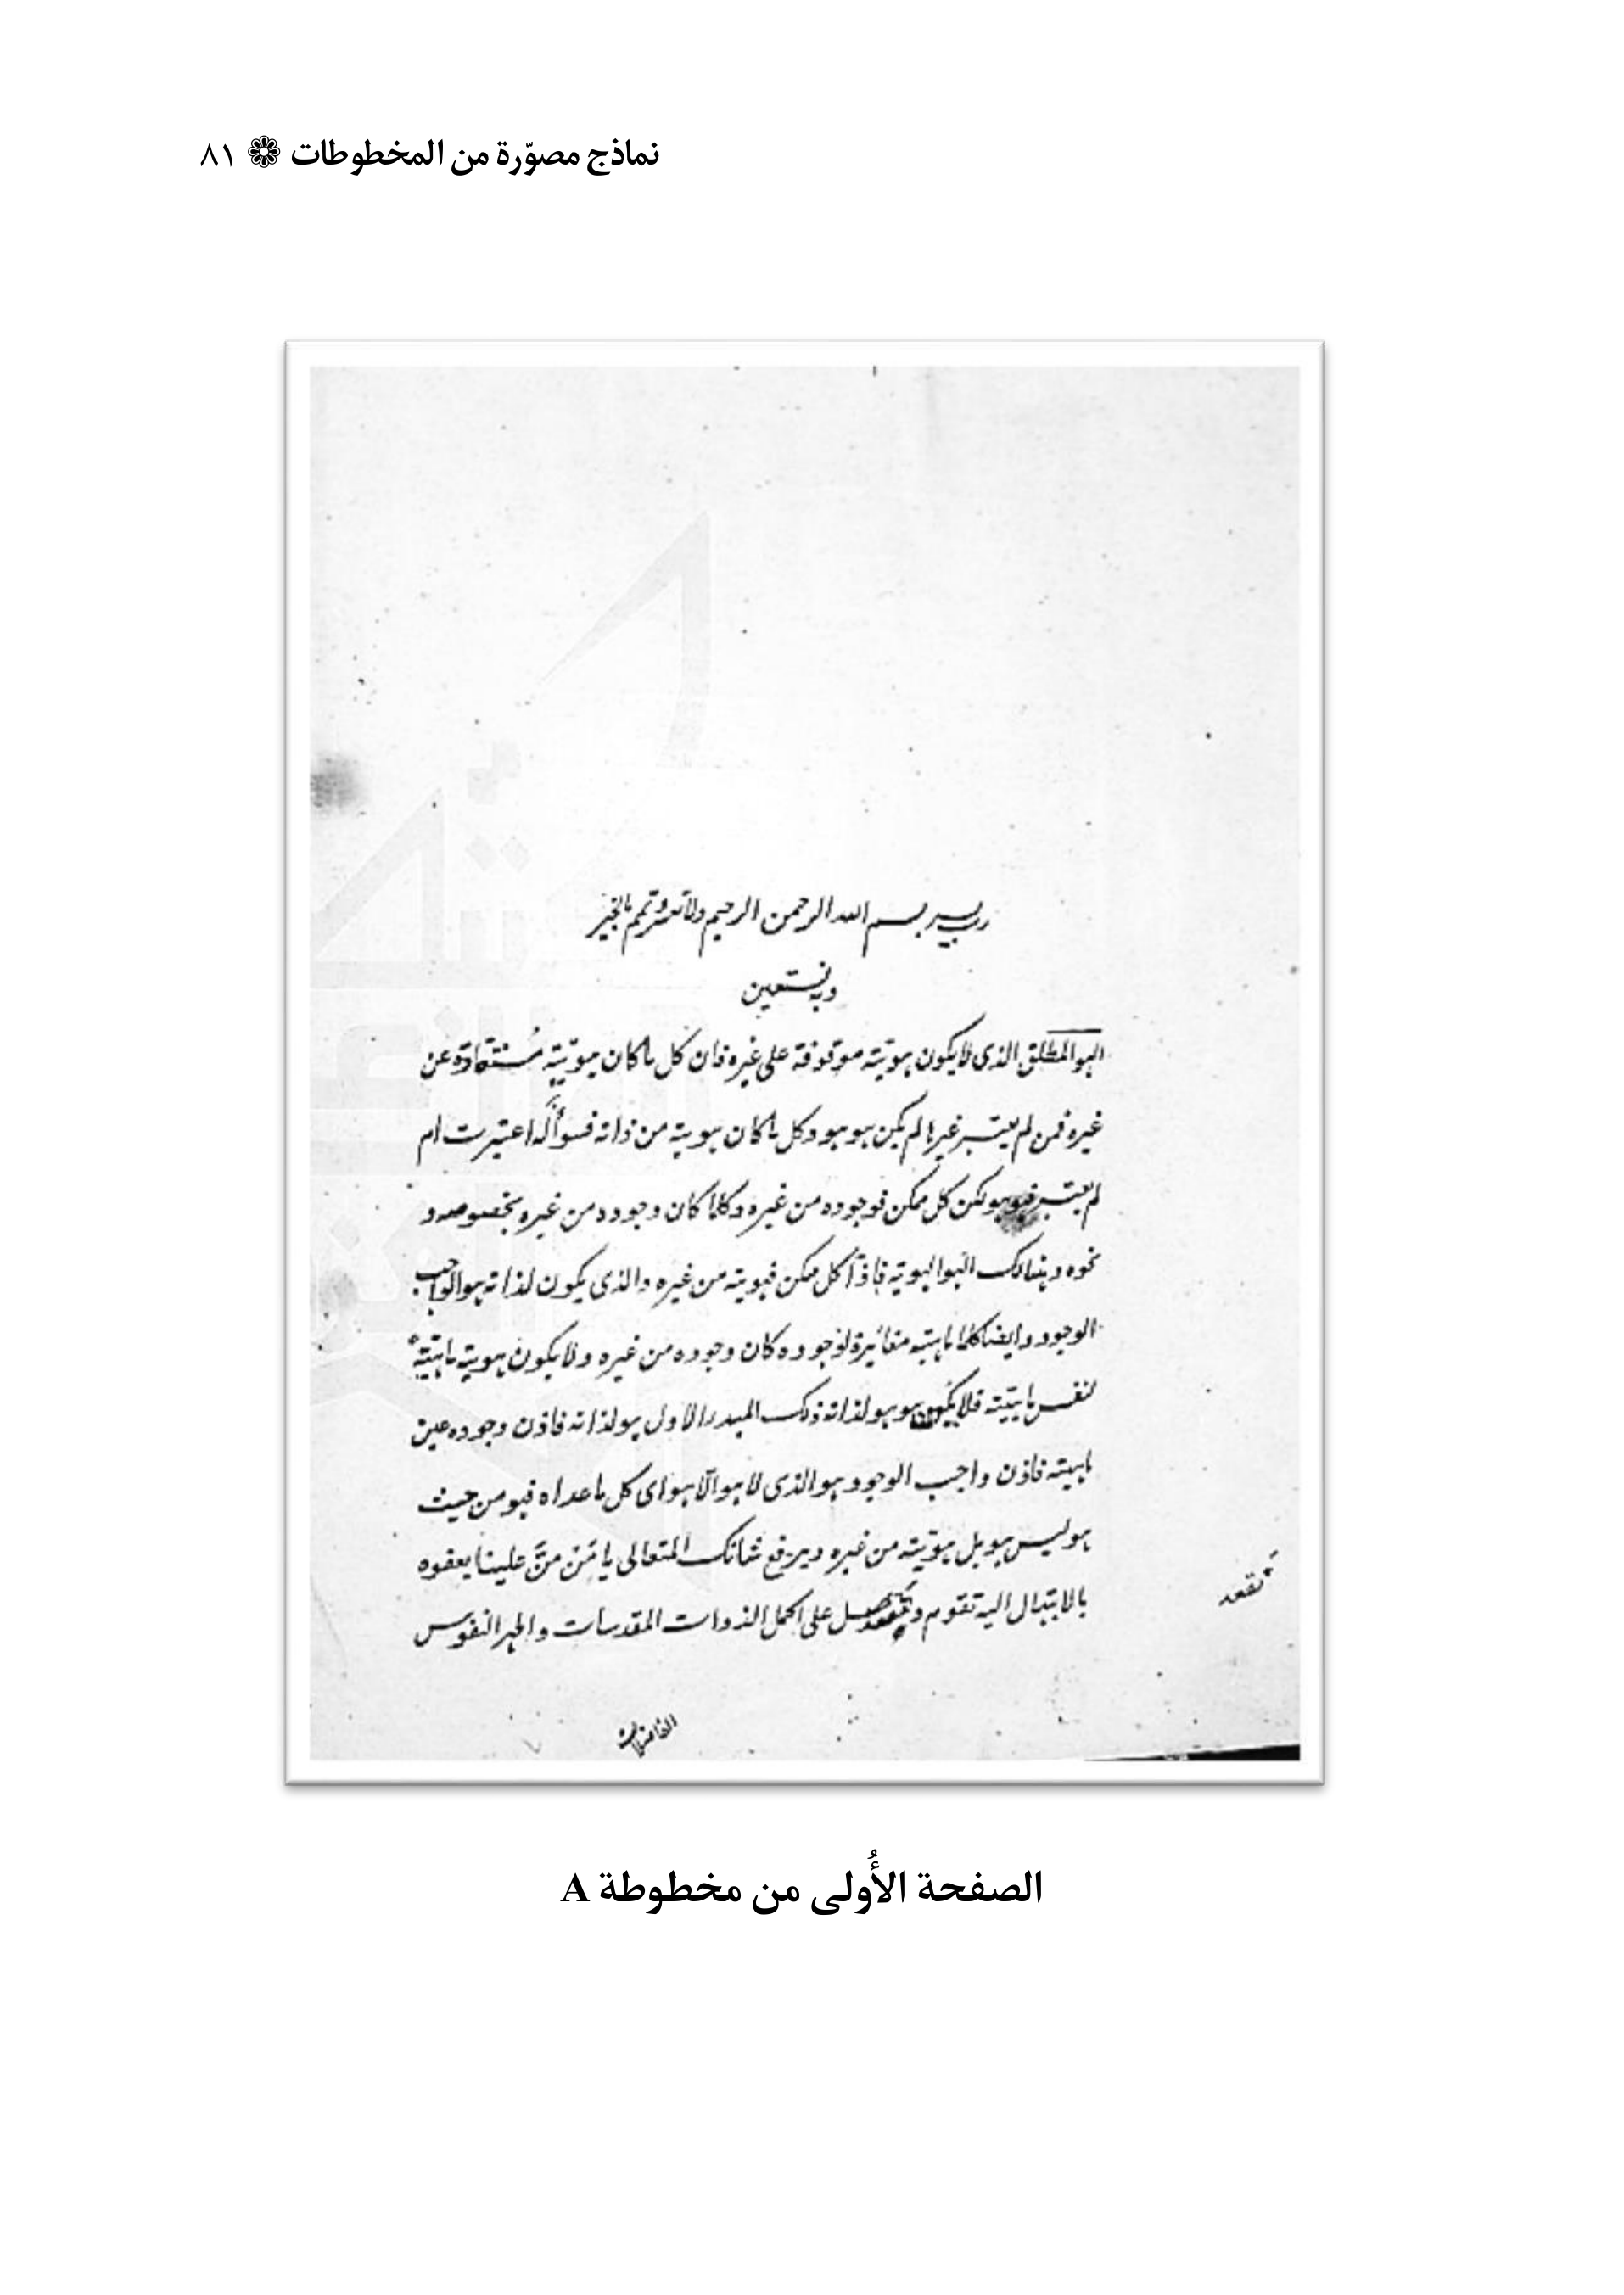 نماذج مصوّرة من المخطوطات ❁ ٨١
رب يسر بسم الله الرحمن الرحيم ولا تعسر وتمم بالخير
وبه نستعين
الهو المطلق الذى لا يكون هويته موقوفة على غيره فان كل ما كان هويته مستفادة عن
غيره فمن لم يعتبر غيرها لم يكن هو هو وكل ما كان هويته من ذاته فسواء اعتبرت ام
لم يعتبر فهو هو لكن كل ممكن فوجوده من غيره وكلما كان وجوده من غيره بخصوصه و
نحوه وهنالك الهو الهوية فاذا كل ممكن فهويته من غيره والذى يكون لذاته هو الواجب
الوجود وايضا كلما ماهيته مغائرة لوجوده كان وجوده من غيره ولا يكون هويته ماهيته
لنفس ماهيته فلا يكون هو هو لذاته ذلك المبدء الاول هو لذاته فاذن وجوده عين
ماهيته فاذن واجب الوجود هو الذى لا هو الا هو اى كل ما عداه فهو من حيث
هو ليس هو بل هويته من غيره ويرفع شانك المتعالى يا من منّ علينا بعقوه
بالابتهال اليه تقوم و على اكمل الذوات المقدسات والنفوس
تقعد
الصفحة الأُولى من مخطوطة A